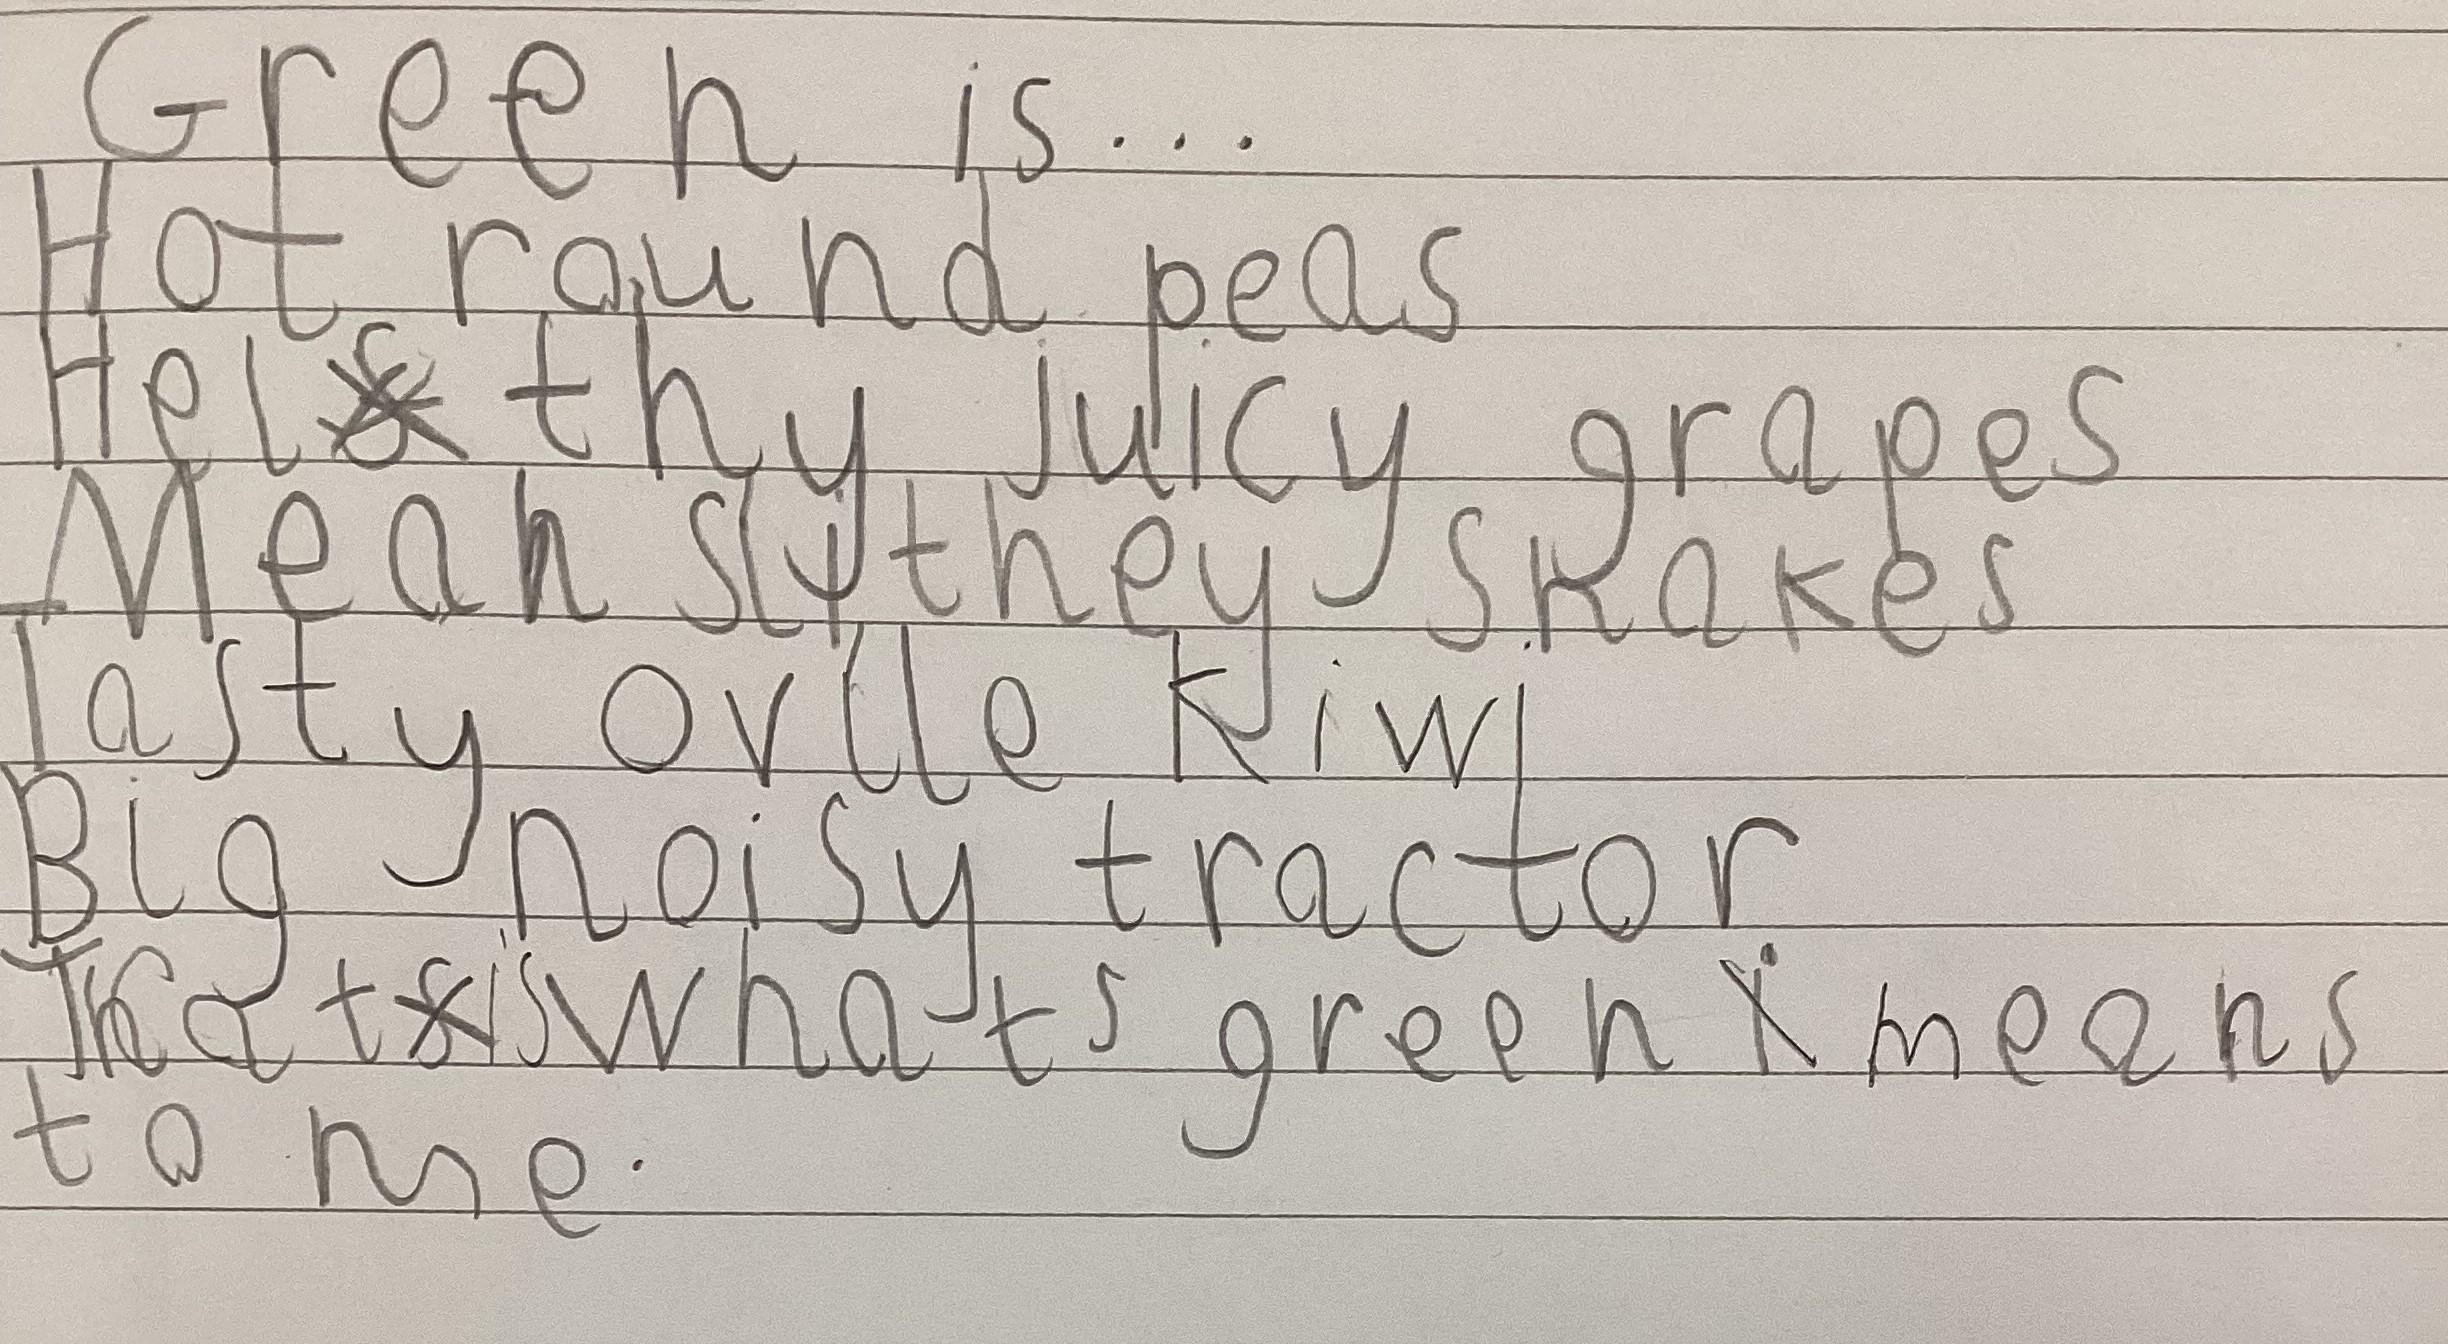 Green is...
Hot round peas
Helthy juicy grapes
Mean slythey snakes
Tasty ovlle kiwi
Big noisy tractor
That is whats green means
to me.